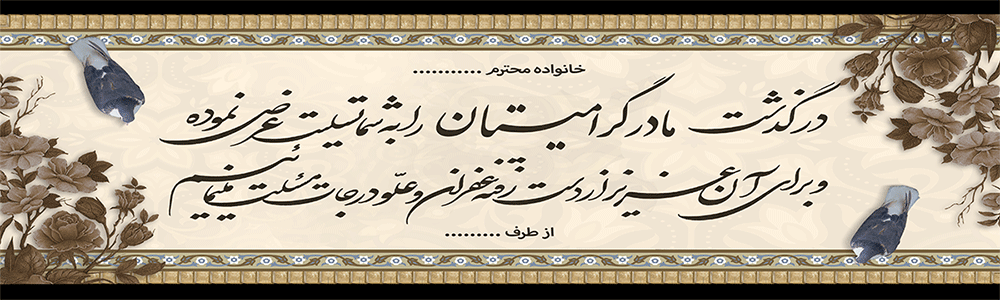 خانواده محترم ...........
درگذشت مادر گرامیتان را به شما تسلیت عرض نموده
و برای آن عزیز از دست رفته غفران و علو درجات مسئلت مینمائیم
از طرف .........